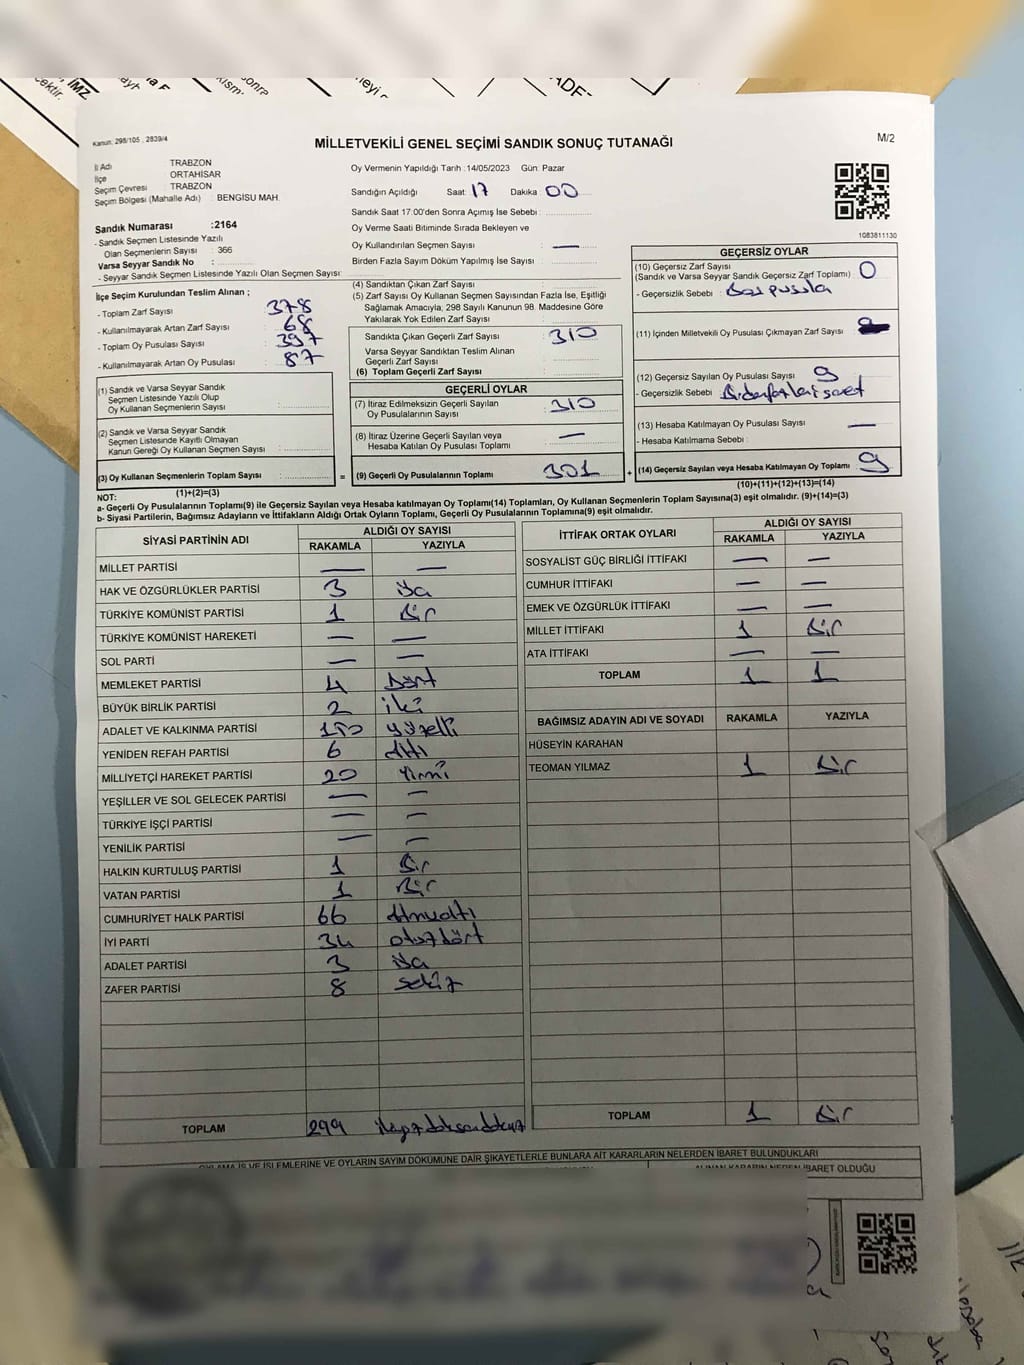 Kanun: 298/105 , 2839/4
MİLLETVEKİLİ GENEL SEÇİMİ SANDIK SONUÇ TUTANAĞI
M/2
İl Adı : TRABZON
İlçe : ORTAHİSAR
Seçim Çevresi : TRABZON
Seçim Bölgesi (Mahalle Adı) : BENGISU MAH.
Oy Vermenin Yapıldığı Tarih :14/05/2023 Gün: Pazar
Sandığın Açıldığı Saat: 17 Dakika: 00
Sandık Saat 17.00'den Sonra Açımış İse Sebebi :
Oy Verme Saati Bitiminde Sırada Bekleyen ve
Oy Kullandırılan Seçmen Sayısı : —
Birden Fazla Sayım Döküm Yapılmış İse Sayısı :
1083811130
Sandık Numarası :2164
- Sandık Seçmen Listesinde Yazılı
Olan Seçmenlerin Sayısı : 366
Varsa Seyyar Sandık No :
- Seyyar Sandık Seçmen Listesinde Yazılı Olan Seçmen Sayısı:
İlçe Seçim Kurulundan Teslim Alınan ;
- Toplam Zarf Sayısı : 378
- Kullanılmayarak Artan Zarf Sayısı : 68
- Toplam Oy Pusulası Sayısı : 397
- Kullanılmayarak Artan Oy Pusulası : 87
(1) Sandık ve Varsa Seyyar Sandık
Seçmen Listesinde Yazılı Olup
Oy Kullanan Seçmenlerin Sayısı :
(2) Sandık ve Varsa Seyyar Sandık
Seçmen Listesinde Kayıtlı Olmayan
Kanun Gereği Oy Kullanan Seçmen Sayısı :
(3) Oy Kullanan Seçmenlerin Toplam Sayısı :
(1)+(2)=(3)
(4) Sandıktan Çıkan Zarf Sayısı :
(5) Zarf Sayısı Oy Kullanan Seçmen Sayısından Fazla İse, Eşitliği
Sağlamak Amacıyla, 298 Sayılı Kanunun 98. Maddesine Göre
Yakılarak Yok Edilen Zarf Sayısı :
Sandıkta Çıkan Geçerli Zarf Sayısı : 310
Varsa Seyyar Sandıktan Teslim Alınan
Geçerli Zarf Sayısı :
(6) Toplam Geçerli Zarf Sayısı :
GEÇERLİ OYLAR
(7) İtiraz Edilmeksizin Geçerli Sayılan
Oy Pusulalarının Sayısı : 310
(8) İtiraz Üzerine Geçerli Sayılan veya
Hesaba Katılan Oy Pusulası Toplamı : —
= (9) Geçerli Oy Pusulalarının Toplamı : 301
GEÇERSİZ OYLAR
(10) Geçersiz Zarf Sayısı
(Sandık ve Varsa Seyyar Sandık Geçersiz Zarf Toplamı) : 0
- Geçersizlik Sebebi : Boş pusula
(11) İçinden Milletvekili Oy Pusulası Çıkmayan Zarf Sayısı :
(12) Geçersiz Sayılan Oy Pusulası Sayısı : 9
- Geçersizlik Sebebi : Birden fazla işaret
(13) Hesaba Katılmayan Oy Pusulası Sayısı : —
- Hesaba Katılmama Sebebi :
+ (14) Geçersiz Sayılan veya Hesaba Katılmayan Oy Toplamı : 9
(10)+(11)+(12)+(13)=(14)
NOT:
a- Geçerli Oy Pusulalarının Toplamı(9) ile Geçersiz Sayılan veya Hesaba katılmayan Oy Toplamı(14) Toplamları, Oy Kullanan Seçmenlerin Toplam Sayısına(3) eşit olmalıdır. (9)+(14)=(3)
b- Siyasi Partilerin, Bağımsız Adayların ve İttifakların Aldığı Ortak Oyların Toplamı, Geçerli Oy Pusulalarının Toplamına(9) eşit olmalıdır.
SİYASİ PARTİNİN ADI ALDIĞI OY SAYISI
RAKAMLA YAZIYLA
MİLLET PARTİSİ — —
HAK VE ÖZGÜRLÜKLER PARTİSİ 3 üç
TÜRKİYE KOMÜNİST PARTİSİ 1 Bir
TÜRKİYE KOMÜNİST HAREKETİ — —
SOL PARTİ — —
MEMLEKET PARTİSİ 4 Dört
BÜYÜK BİRLİK PARTİSİ 2 iki
ADALET VE KALKINMA PARTİSİ 150 yüzelli
YENİDEN REFAH PARTİSİ 6 Altı
MİLLİYETÇİ HAREKET PARTİSİ 20 Yirmi
YEŞİLLER VE SOL GELECEK PARTİSİ — —
TÜRKİYE İŞÇİ PARTİSİ — —
YENİLİK PARTİSİ — —
HALKIN KURTULUŞ PARTİSİ 1 Bir
VATAN PARTİSİ 1 Bir
CUMHURİYET HALK PARTİSİ 66 Atmışaltı
İYİ PARTİ 34 otuzdört
ADALET PARTİSİ 3 üç
ZAFER PARTİSİ 8 sekiz
TOPLAM 299 ikiyüzdoksandokuz
İTTİFAK ORTAK OYLARI ALDIĞI OY SAYISI
RAKAMLA YAZIYLA
SOSYALİST GÜÇ BİRLİĞİ İTTİFAKI — —
CUMHUR İTTİFAKI — —
EMEK VE ÖZGÜRLÜK İTTİFAKI — —
MİLLET İTTİFAKI 1 Bir
ATA İTTİFAKI — —
TOPLAM 1 1
BAĞIMSIZ ADAYIN ADI VE SOYADI RAKAMLA YAZIYLA
HÜSEYİN KARAHAN
TEOMAN YILMAZ 1 Bir
TOPLAM 1 Bir
OYLAMA İŞ VE İŞLEMLERİNE VE OYLARIN SAYIM DÖKÜMÜNE DAİR ŞİKAYETLERLE BUNLARA AİT KARARLARIN NELERDEN İBARET BULUNDUKLARI
ALINAN KARARIN NEDEN İBARET OLDUĞU